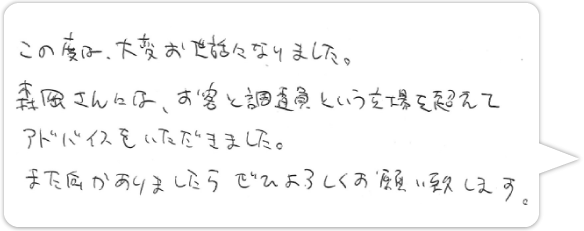 この度は、大変お世話になりました。
森岡さんには、お客と調査員という立場を超えて
アドバイスをいただきました。
また何かありましたら ぜひよろしくお願い致します。